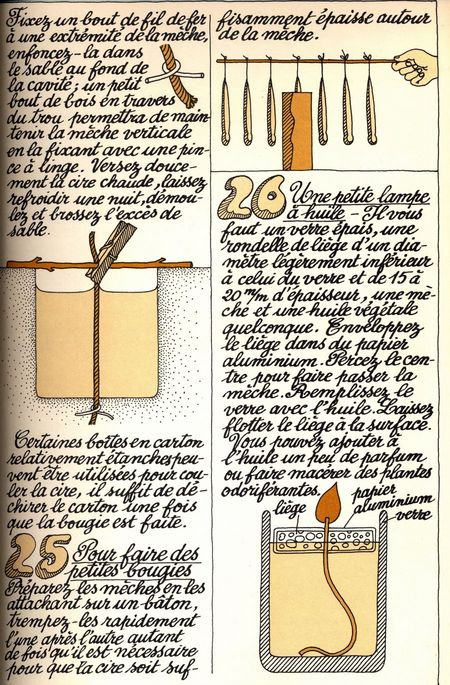 Fixez un bout de fil de fer
à une extrémité de la mèche,
enfoncez-la dans
le sable au fond de
la cavité ; un petit
bout de bois en travers
du trou permettra de main-
tenir la mèche verticale
en la fixant avec une pin-
ce à linge. Versez douce-
ment la cire chaude, laissez
refroidir une nuit, démou-
lez et brossez l'excès de
sable.
Certaines boîtes en carton
relativement étanches peu-
vent être utilisées pour cou-
ler la cire, il suffit de dé-
chirer le carton une fois
que la bougie est faite.
25 Pour faire des
petites bougies
Préparez les mèches en les
attachant sur un bâton,
trempez-les rapidement
l'une après l'autre autant
de fois qu'il est nécessaire
pour que la cire soit suf-
fisamment épaisse autour
de la mèche.
26 Une petite lampe
à huile - Il vous
faut un verre épais, une
rondelle de liège d'un dia-
mètre légèrement inférieur
à celui du verre et de 15 à
20 m/m d'épaisseur, une mè-
che et une huile végétale
quelconque. Enveloppez
le liège dans du papier
aluminium. Percez le cen-
tre pour faire passer la
mèche. Remplissez le
verre avec l'huile. Laissez
flotter le liège à la surface.
Vous pouvez ajouter à
l'huile un peu de parfum
ou faire macérer des plantes
odoriférantes.
liège
papier
aluminium
verre